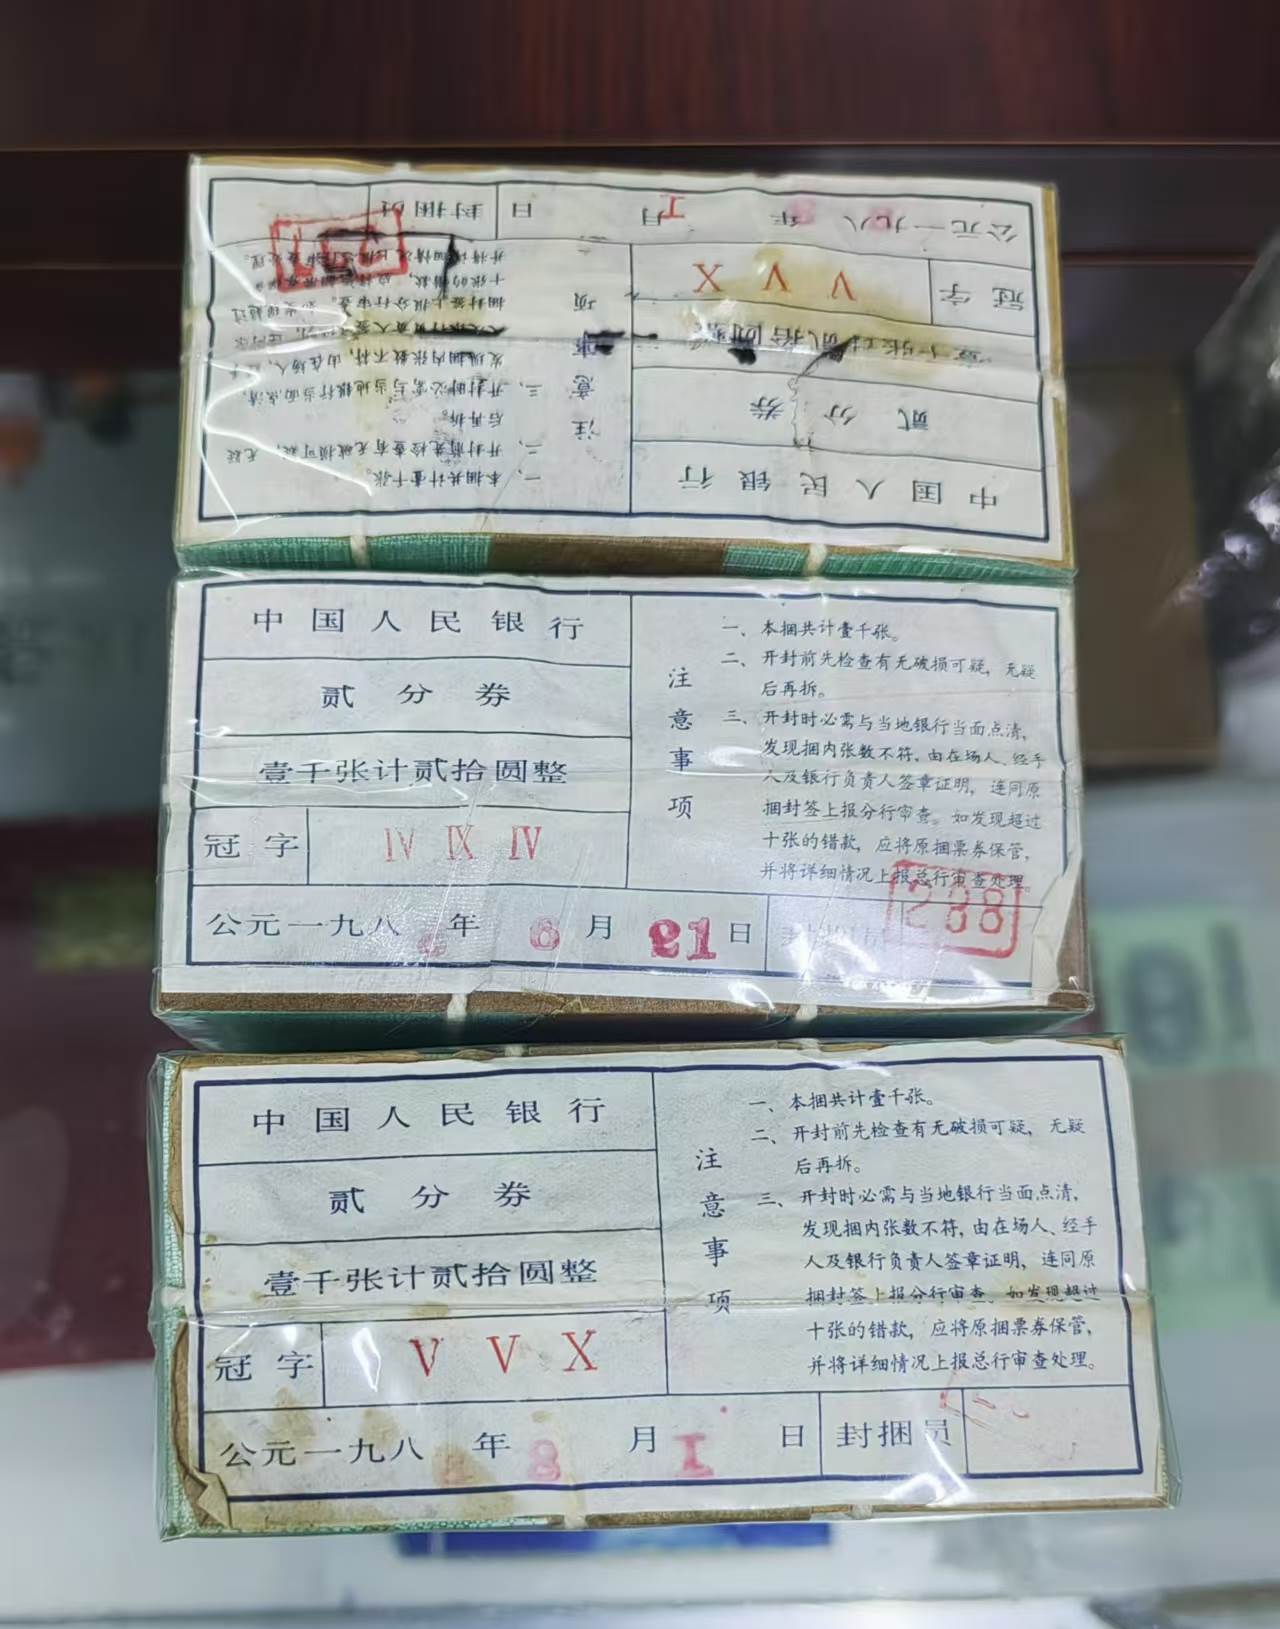 中国人民银行
贰分券
冠字 V V X
公元一九八 年 月 1 日 封捆员
注意事项
一、本捆共计壹千张。
二、开封前先检查有无破损可疑,无疑
后再拆。
三、开封时必需与当地银行当面点清,
发现捆内张数不符,由在场人、
中国人民银行
贰分券
壹千张计贰拾圆整
冠字 IV IX IV
公元一九八 年 8 月 21 日
注意事项
一、本捆共计壹千张。
二、开封前先检查有无破损可疑,无疑
后再拆。
三、开封时必需与当地银行当面点清,
发现捆内张数不符,由在场人、经手
人及银行负责人签章证明,连同原
捆封签上报分行审查。如发现超过
十张的错款,应将原捆票券保管,
并将详细情况上报总行审查处理。
288
中国人民银行
贰分券
壹千张计贰拾圆整
冠字 V V X
公元一九八 年 8 月 1 日 封捆员
注意事项
一、本捆共计壹千张。
二、开封前先检查有无破损可疑,无疑
后再拆。
三、开封时必需与当地银行当面点清,
发现捆内张数不符,由在场人、经手
人及银行负责人签章证明,连同原
捆封签上报分行审查。如发现超过
十张的错款,应将原捆票券保管,
并将详细情况上报总行审查处理。